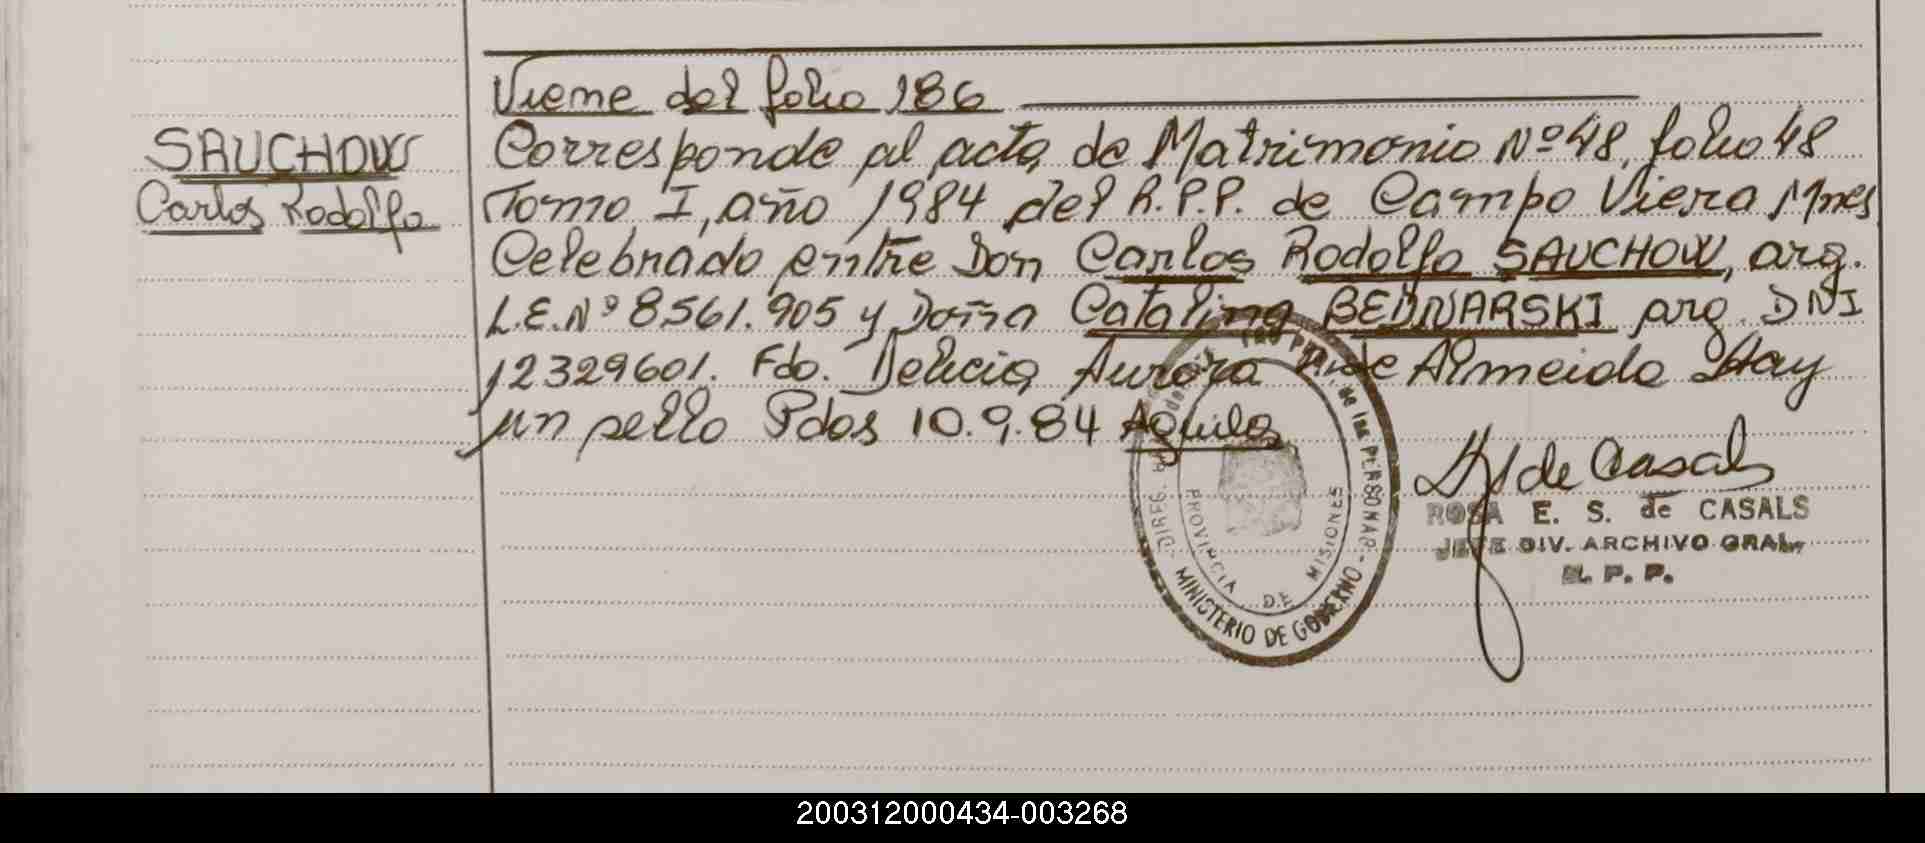 Viene del folio 186
SAUCHOW
Carlos Rodolfo
Corresponde al acta de Matrimonio Nº 48, folio 48
Tomo I, año 1984 del R.P.P. de Campo Viera Mnes
Celebrado entre Don Carlos Rodolfo SAUCHOW, arg.
L.E. Nº 8.561.905 y Doña Catalina BEDNARSKI arg. DNI
12329601. Fdo. Delicia Aurora A. de Almeida Hay
un sello Pdos 10.9.84 Aguila
de Casals
ROSA E. S. de CASALS
JEFE DIV. ARCHIVO GRAL.
R. P. P.
PROVINCIA DE MISIONES
MINISTERIO DE GOBIERNO
de las PERSONAS
200312000434-003268